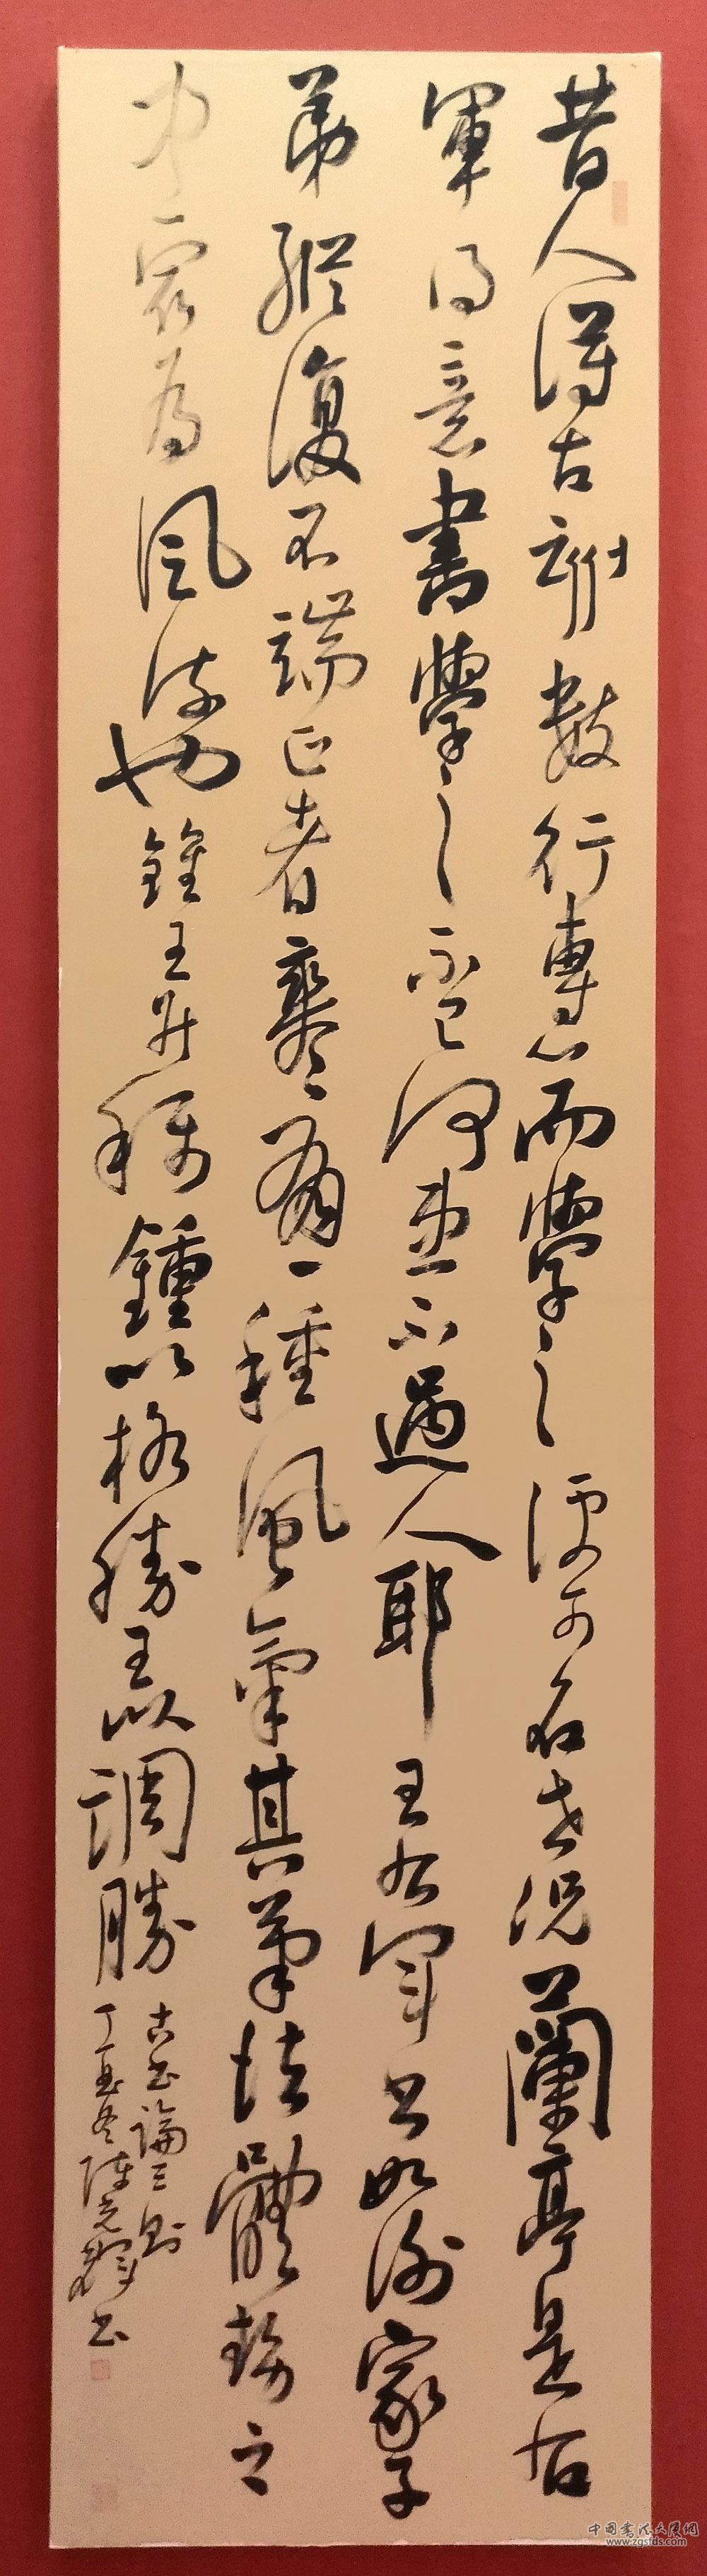 昔人得古刻數行專心而學之便可名世况蘭亭是右
軍得意書學之不已何患不過人耶王右軍書如謝家子
弟縱復不端正者爽爽有一種風氣其筆法體勢之
中最為風流也鍾王並稱鍾以格勝王以調勝
古書論三則
丁酉冬陳羣書
中國書法大展網
www.zgsfds.com